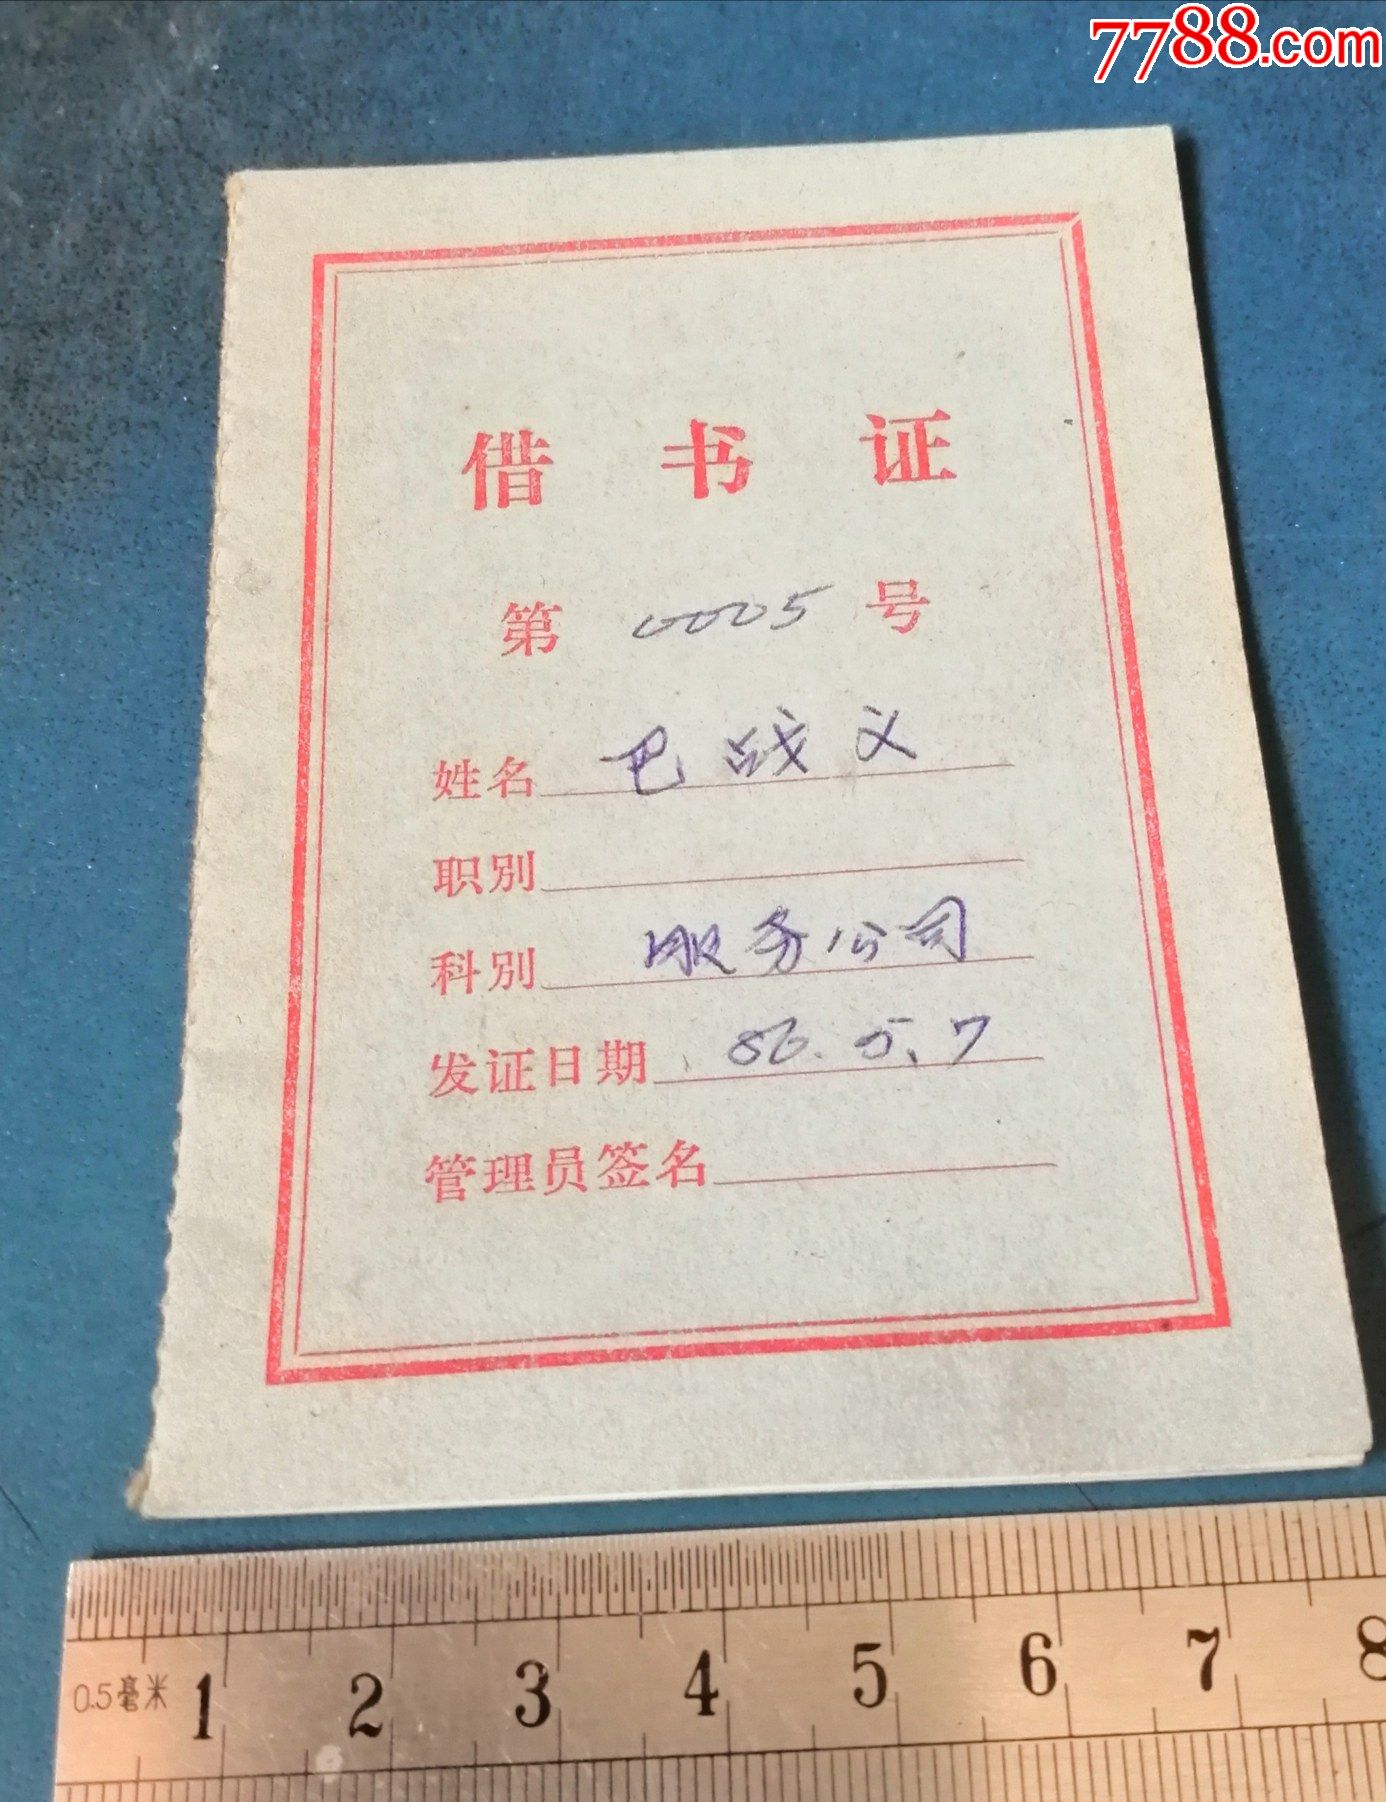 7788.com
借书证
第 0005 号
姓名 巴战义
职别
科别 服务公司
发证日期 86.5.7
管理员签名
0.5毫米 1 2 3 4 5 6 7 8